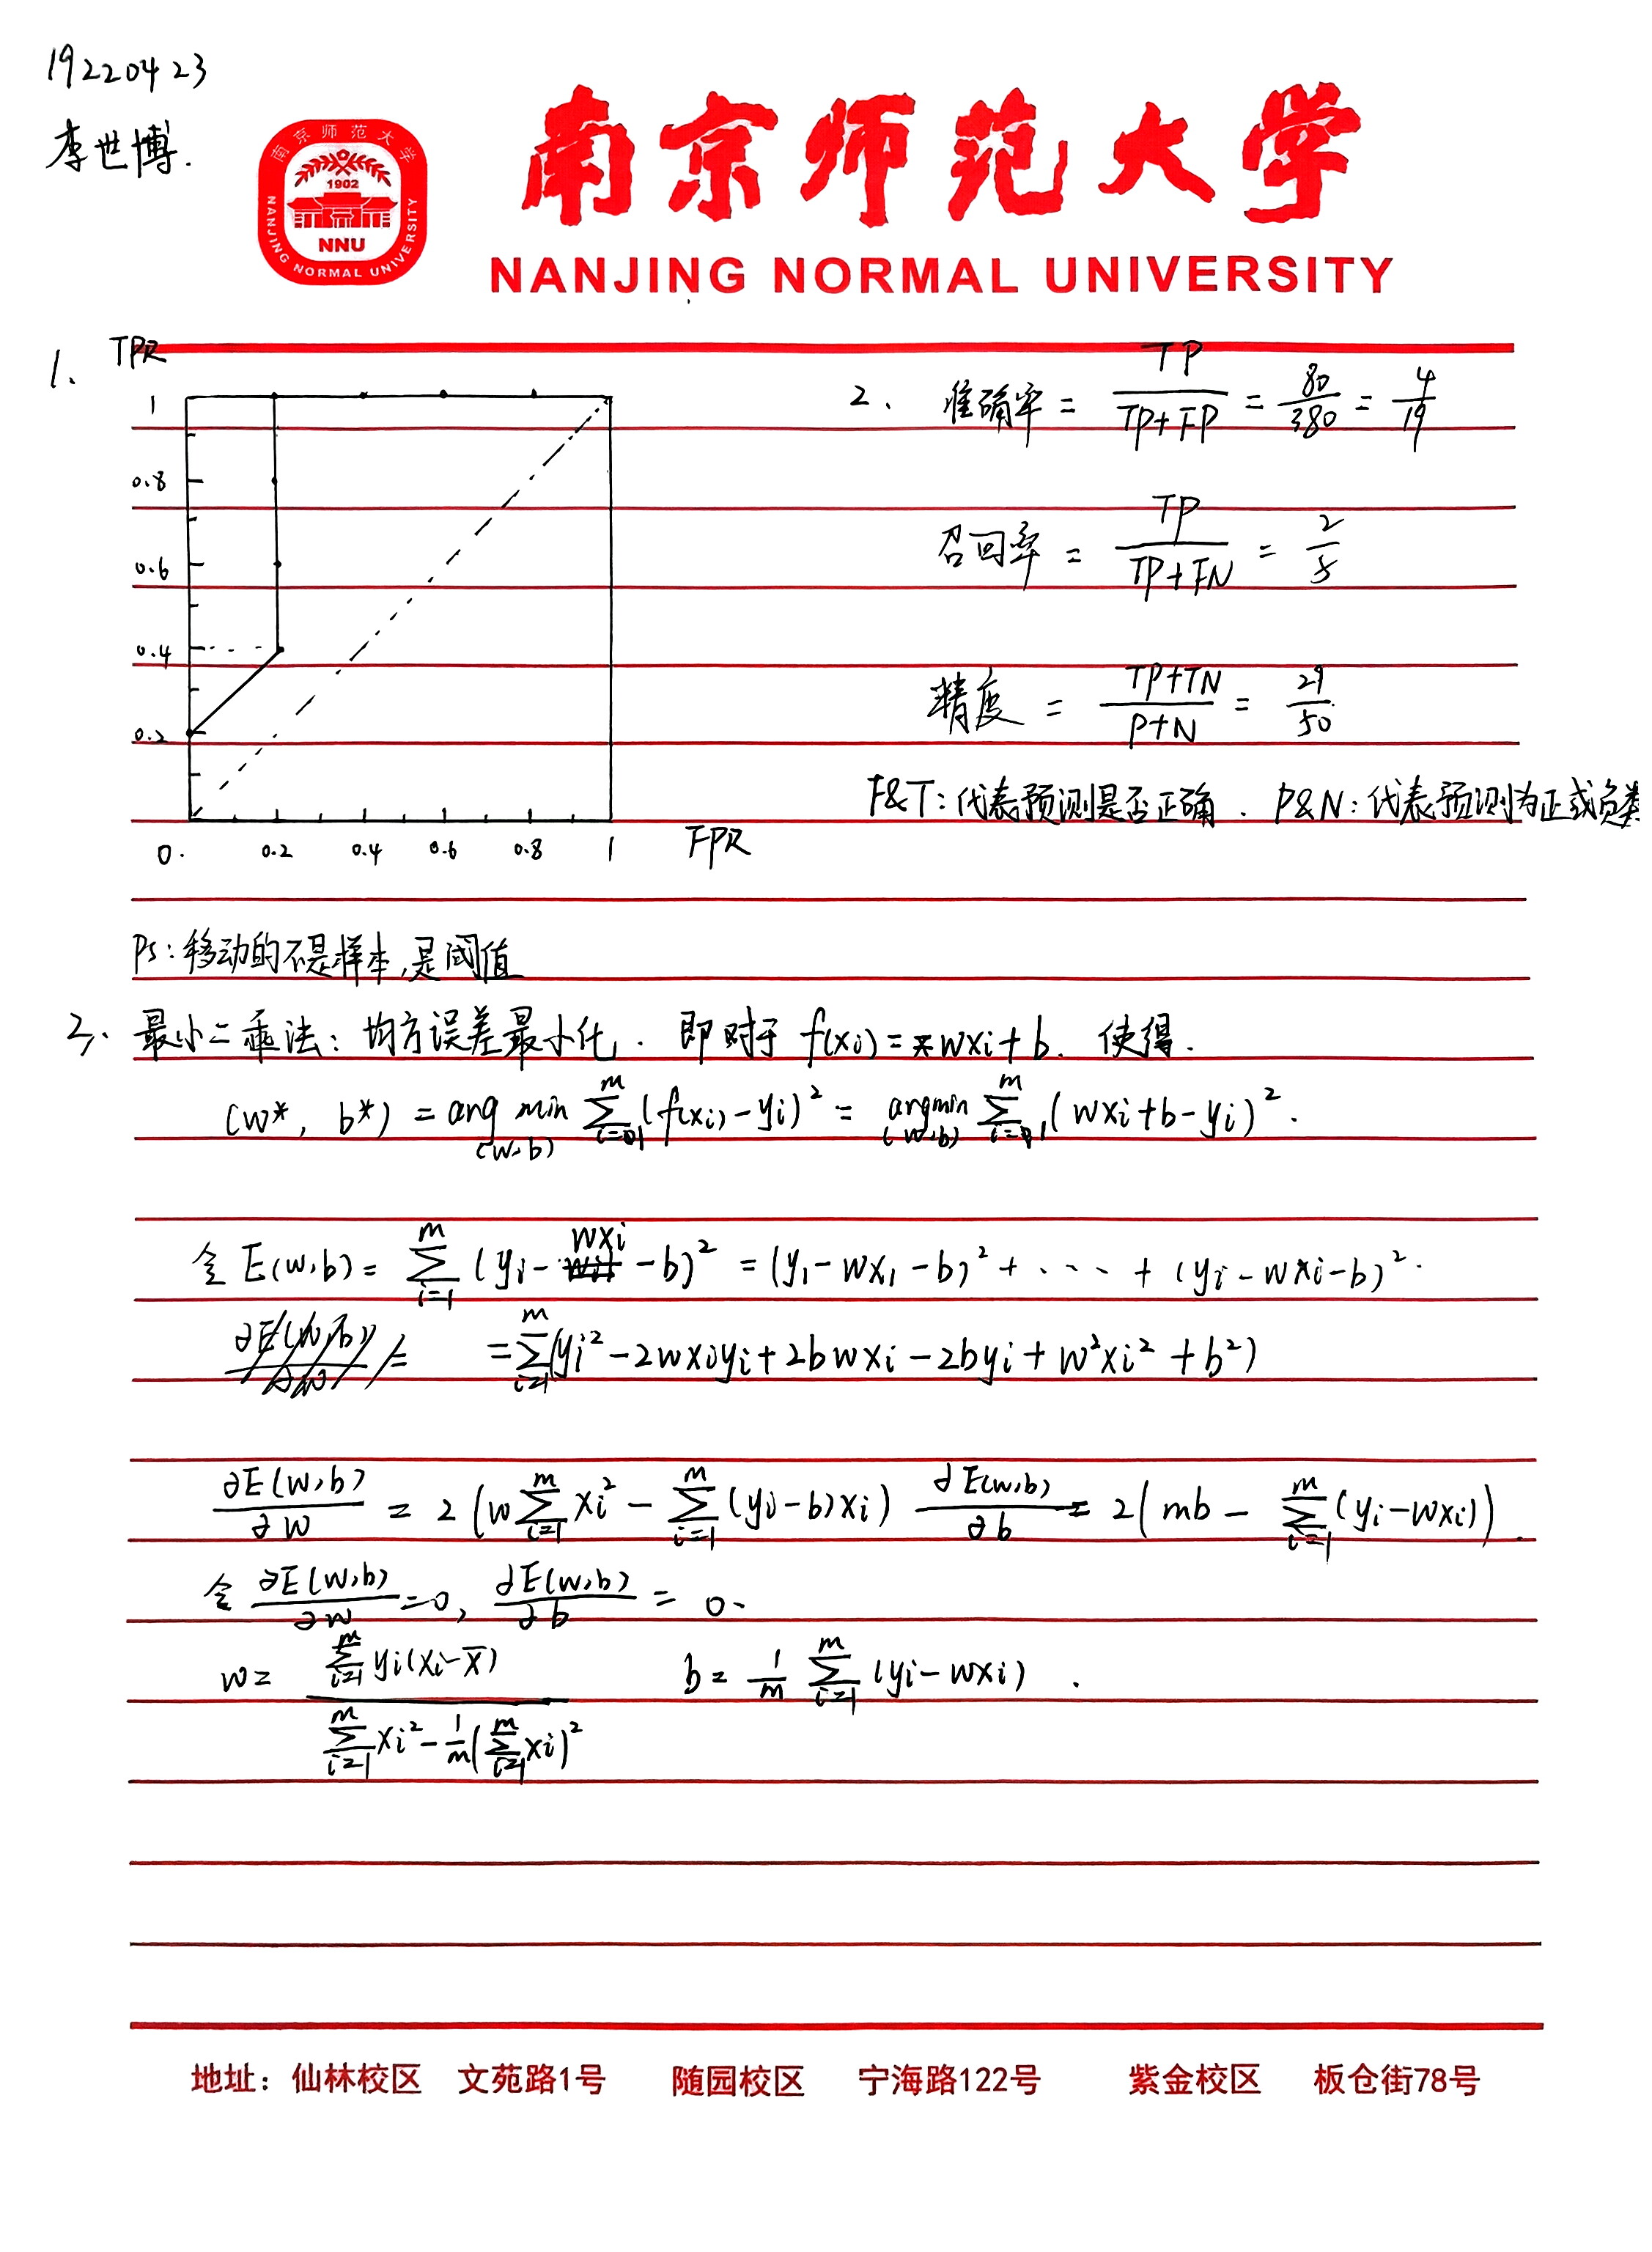 19220423
李世博.
南京师范大学
1902
NNU
NANJING NORMAL UNIVERSITY
南京师范大学
NANJING NORMAL UNIVERSITY
1.
TPR
1
0.8
0.6
0.4
0.2
0.
0.2
0.4
0.6
0.8
1
FPR
2. 准确率 = TP/(TP+FP) = 80/380 = 4/19
召回率 = TP/(TP+FN) = 2/5
精度 = (TP+TN)/(P+N) = 29/50
F&T:代表预测是否正确. P&N:代表预测为正或负类
Ps:移动的不是样本,是阈值
3. 最小二乘法: 均方误差最小化. 即对于 f(xi) = wxi + b. 使得.
(w*, b*) = arg min (w,b) ∑_{i=1}^{m} (f(xi) - yi)² = arg min (w,b) ∑_{i=1}^{m} (wxi + b - yi)².
令 E(w,b) = ∑_{i=1}^{m} (yi - wxi - b)² = (y1 - wx1 - b)² + ···· + (yi - wxi - b)².
= ∑_{i=1}^{m} (yi² - 2wxiyi + 2bwxi - 2byi + w²xi² + b²)
∂E(w,b)/∂w = 2 (w ∑_{i=1}^{m} xi² - ∑_{i=1}^{m} (yi - b)xi) ∂E(w,b)/∂b = 2 (mb - ∑_{i=1}^{m} (yi - wxi)).
令 ∂E(w,b)/∂w = 0, ∂E(w,b)/∂b = 0.
w = ∑_{i=1}^{m} yi(xi - x̄) / (∑_{i=1}^{m} xi² - 1/m (∑_{i=1}^{m} xi)²) b = 1/m ∑_{i=1}^{m} (yi - wxi).
地址: 仙林校区 文苑路1号 随园校区 宁海路122号 紫金校区 板仓街78号